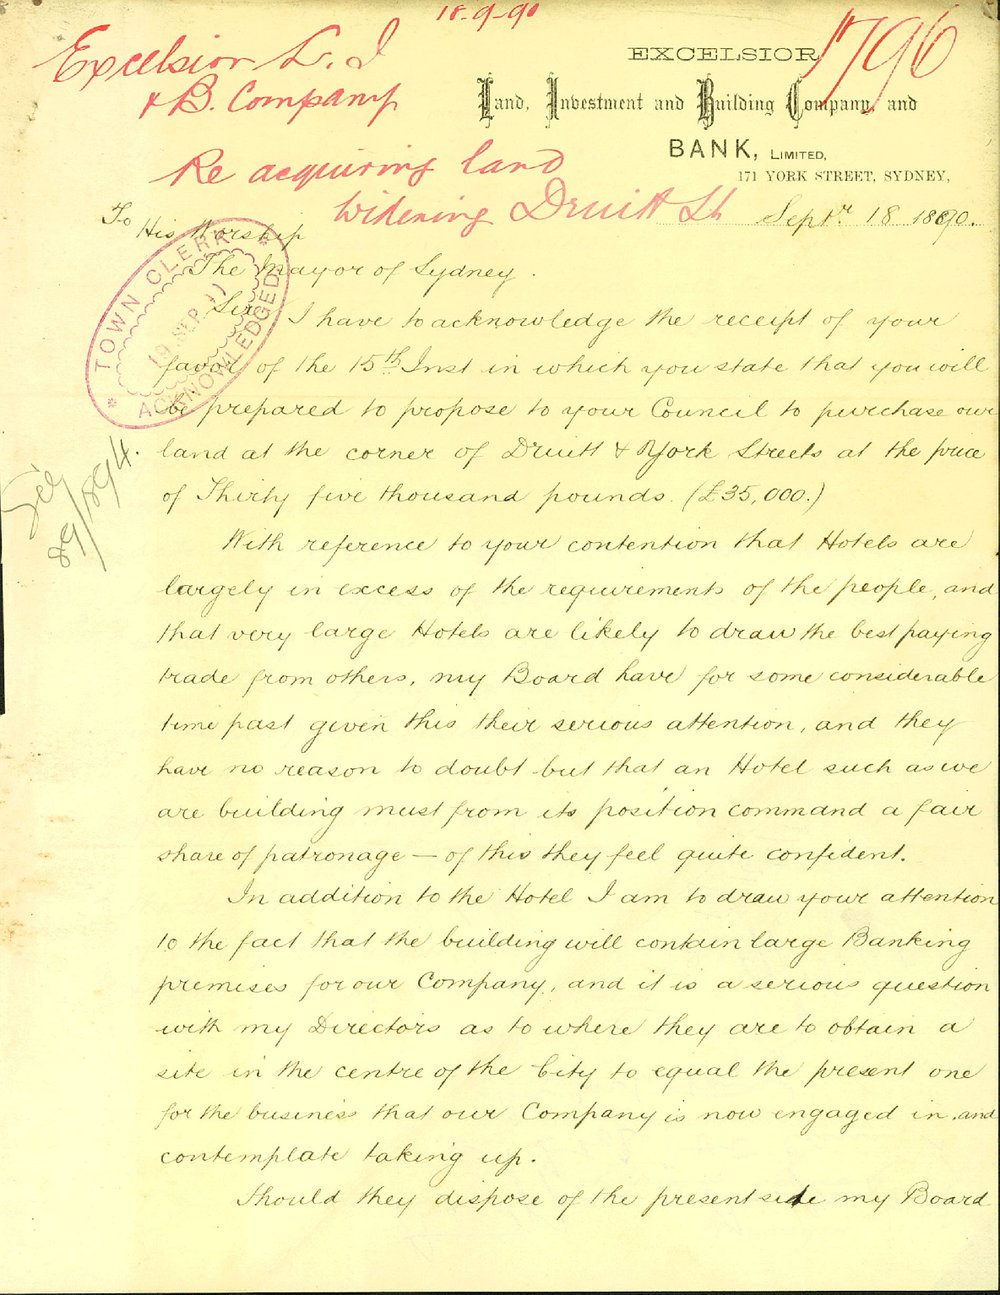 18-9-90
Excelsior L. I
& B. Company
1796
EXCELSIOR
Land, Investment and Building Company, and
BANK, LIMITED,
171 YORK STREET, SYDNEY,
Re acquiring land
widening Druitt St
Septr. 18 1890.
To His Worship
The Mayor of Sydney.
TOWN CLERK
19 SEP
ACKNOWLEDGED
See
89/894.
Sir I have to acknowledge the receipt of your
favor of the 15th Inst in which you state that you will
be prepared to propose to your Council to purchase our
land at the corner of Druitt & York Streets at the price
of Thirty five thousand pounds. (£35,000.)
With reference to your contention that Hotels are
largely in excess of the requirements of the people, and
that very large Hotels are likely to draw the best paying
trade from others, my Board have for some considerable
time past given this their serious attention, and they
have no reason to doubt but that an Hotel such as we
are building must from its position command a fair
share of patronage — of this they feel quite confident.
In addition to the Hotel I am to draw your attention
to the fact that the building will contain large Banking
premises for our Company, and it is a serious question
with my Directors as to where they are to obtain a
site in the centre of the City to equal the present one
for the business that our Company is now engaged in and
contemplate taking up.
Should they dispose of the present site my Board